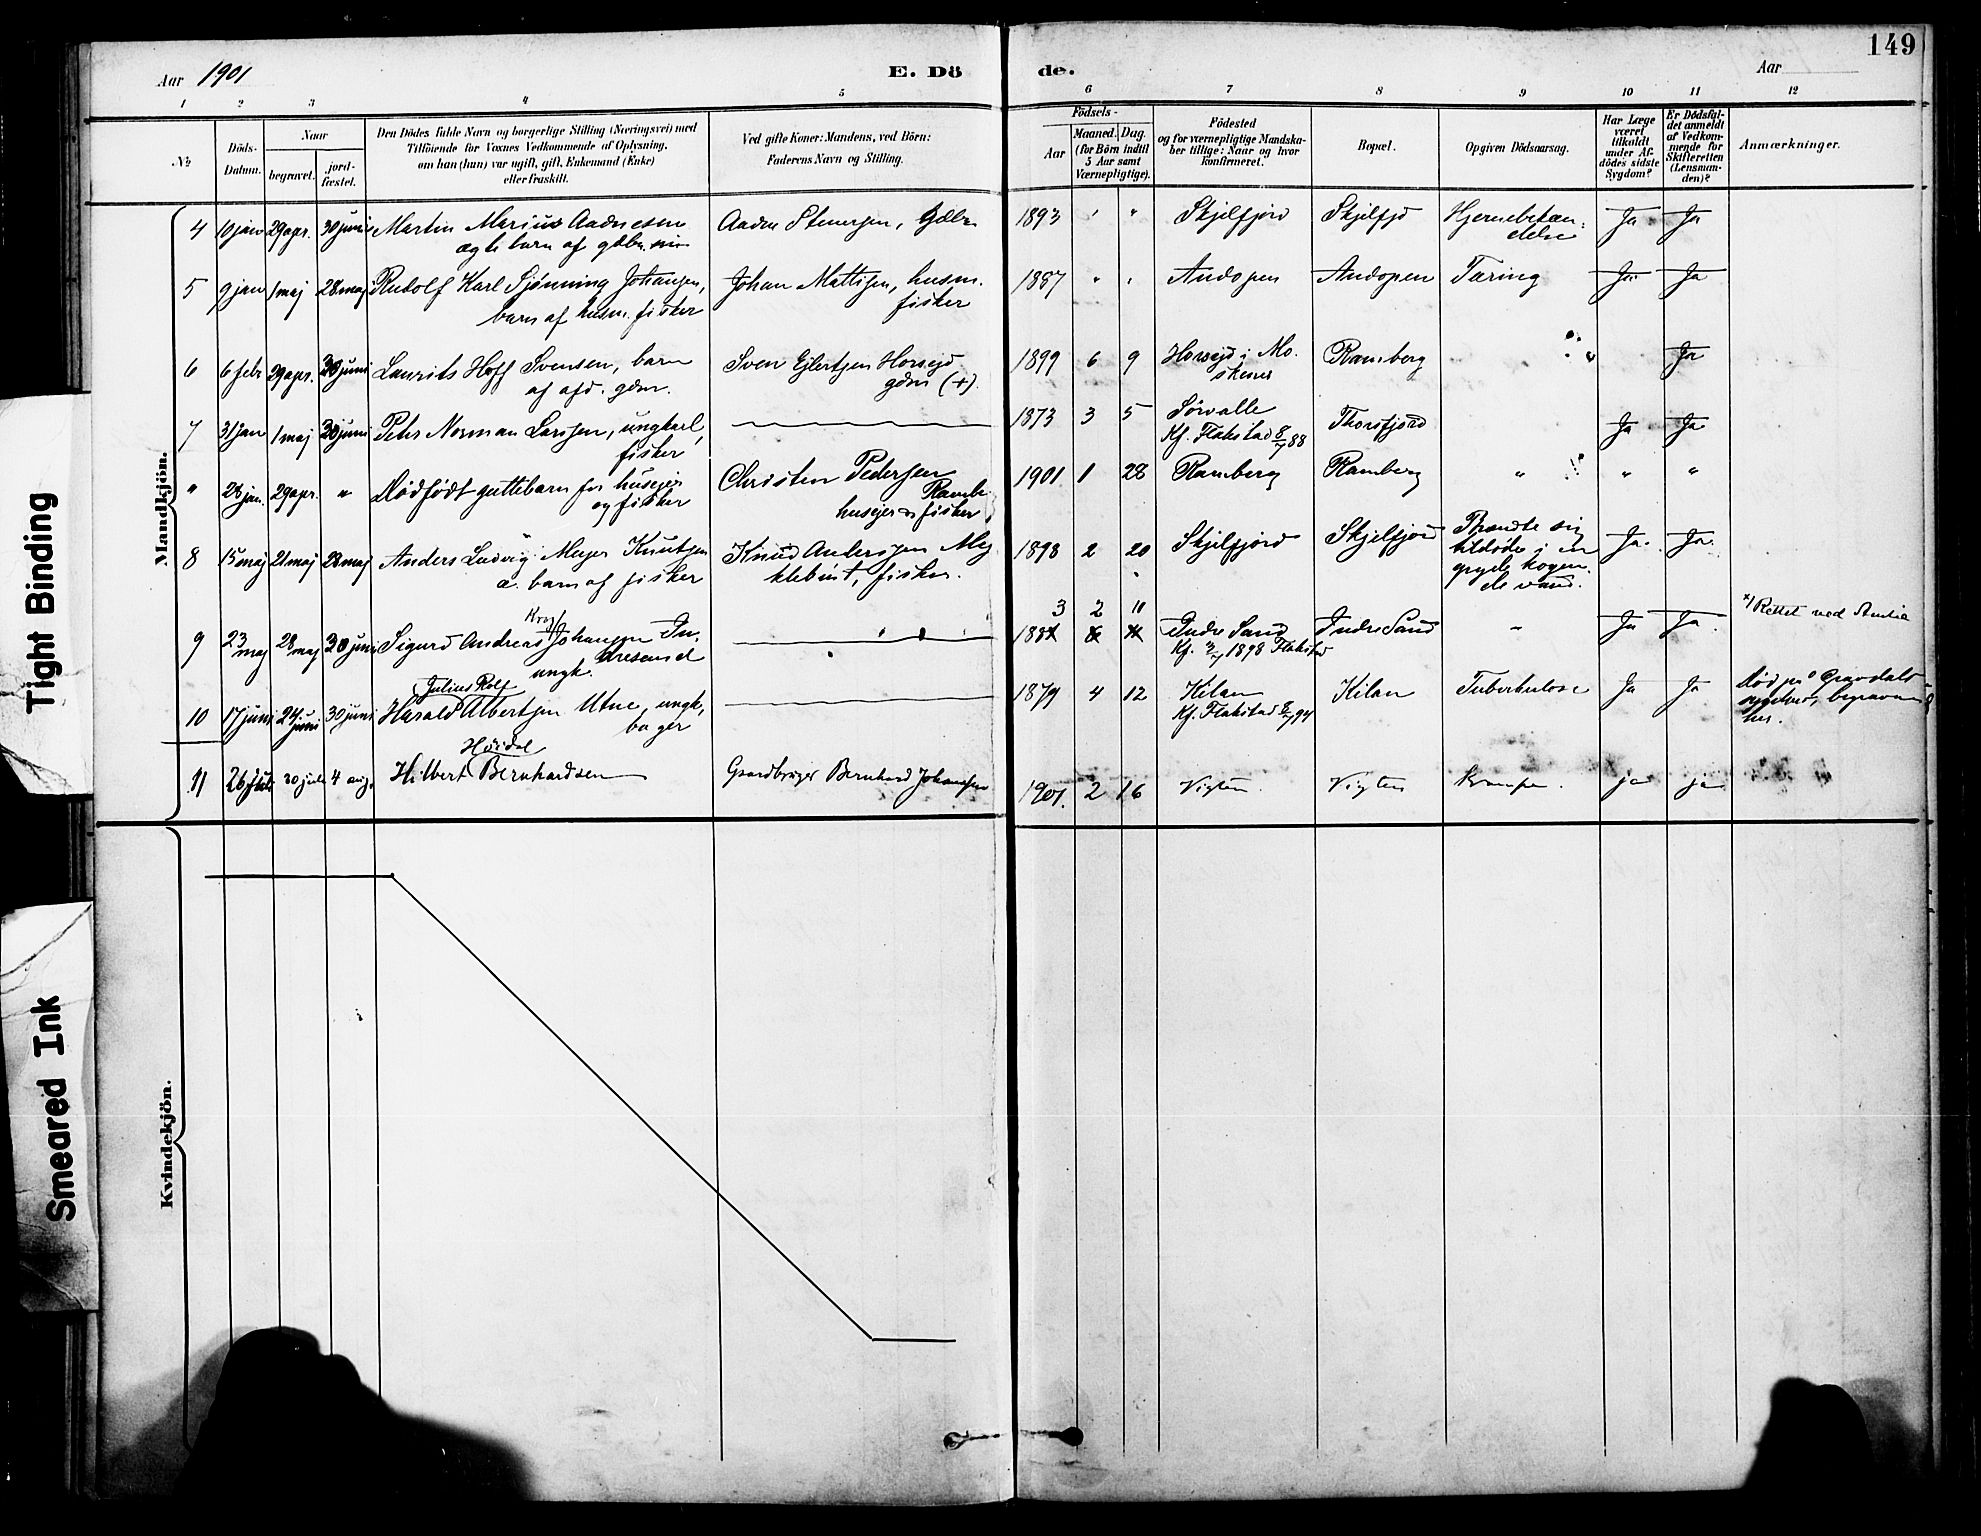 149
Aar 1901
E. Dö
de.
Aar
1 2 3 4 5 6 7 8 9 10 11 12
№
Döds-
Datum.
Naar
begravet.
jord-
fæstet.
Den Dödes fulde Navn og borgerlige Stilling (Næringsvei) med
Tilföiende for Voxnes Vedkommende af Oplysning,
om han (hun) var ugift, gift, Enkemand (Enke)
eller fraskilt.
Ved gifte Koner: Mandens, ved Börn:
Faderens Navn og Stilling.
Födsels-
Aar
Maaned.
Dag.
(for Börn indtil
5 Aar samt
Værnepligtige).
Födested
og for værnepligtige Mandska-
ber tillige: Naar og hvor
konfirmeret.
Bopæl.
Opgiven Dödsaarsag.
Har Læge
været
tilkaldt
under Af-
dödes sidste
Sygdom?
Er Dödsfal-
det anmeldt
af Vedkom-
mende for
Skifteretten
(Lensman-
den)?
Anmærkninger.
Mandkjön.
4 10 jan 29 apr. 30 juni Martin Marius Aadnesen
ægte barn af gdbr.
Aadne Stensen, Gdbr. 1893 " " Skjelfjord Skjelfjd Hjernebetæn-
delse Ja Ja
5 9 jan 1 maj 28 maj Rudolf Karl Sjønning Johansen,
barn af husm. fisker
Johan Mattisen, husm.
fisker
1887 " " Andopen Andopen Tæring Ja Ja
6 6 febr 29 apr. 30 juni Laurits Hoff Svensen, barn
af afd. gdm.
Sven Ejlertsen Horsejd
gdm (+).
1899 6 9 Horsejd i Mo-
skenes Ramberg " Ja
7 31 jan 1 maj 30 juni Peter Norman Larsen, ungkarl,
fisker
1873 3 5 Sørvalle
Kf. Flakstad 8/7 88 Thorsfjord Ja Ja
" 28 jan. 29 apr. " Dødfødt guttebarn for husejer
og fisker
Christen Pedersen
Ramb.
husejer & fisker
1901 1 28 Ramberg Ramberg " " "
8 15 maj 21 maj 28 maj Anders Ludvig Mejer Knutsen
æ. barn af fisker
Knud Andersen My
klebust, fisker.
1898 2 20 Skjelfjord Skjelfjord Brændte sig
tildøde i en
gryde kogen-
de vand. Ja. Ja.
9 23 maj 28 maj 30 juni Sigurd Andreas Johansen
ungk.
3 2 10
Indre Sand
Kf. 1898 Flakstad
Indre Sand " Ja Ja
x) Rettet ved
10 17 juni 24 juni 30 juni Julius Rolf
Harald Albertsen Utne, ungk.,
bager
1879 4 12 Kilan
Kf. Flakstad 8/7 94 Kilan Tuberkulose Ja Ja
død på Gravdals
sygehus, begraven
her.
11 26 juli 30 juli 4 aug. Høidal
Hilbert Bernhardsen
Gaardbruger Bernhard Johansen
1901. 2 16 Vigten. Vigten Krampe. ja ja
Kvindekjön.
Tight Binding
Smeared Ink